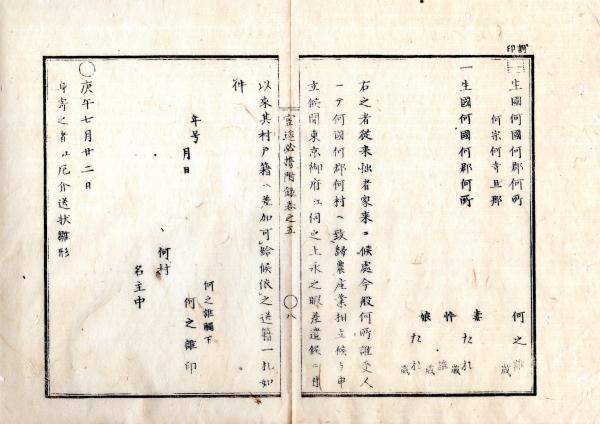 割印
一生國何國何郡何所
何宗何寺旦那
何之誰
歳
一生國何國何郡何所
妻
たれ
歳
忰
誰
歳
娘
たれ
歳
右之者従来拙者家来ニ候處今般何所誰受人
ニテ何國何郡何村ヘ致歸農産業相立候ヨシ申
立候間東京御府江伺之上永之暇差遣候ニ付
宣造必携附録巻之五
〇八
以来其村戸籍ヘ差加可給候依之送籍一札如
件
年号
月日
何之誰触下
何之誰印
何村
名主中
〇庚午七月廿二日
身寄之者江厄介送状雛形